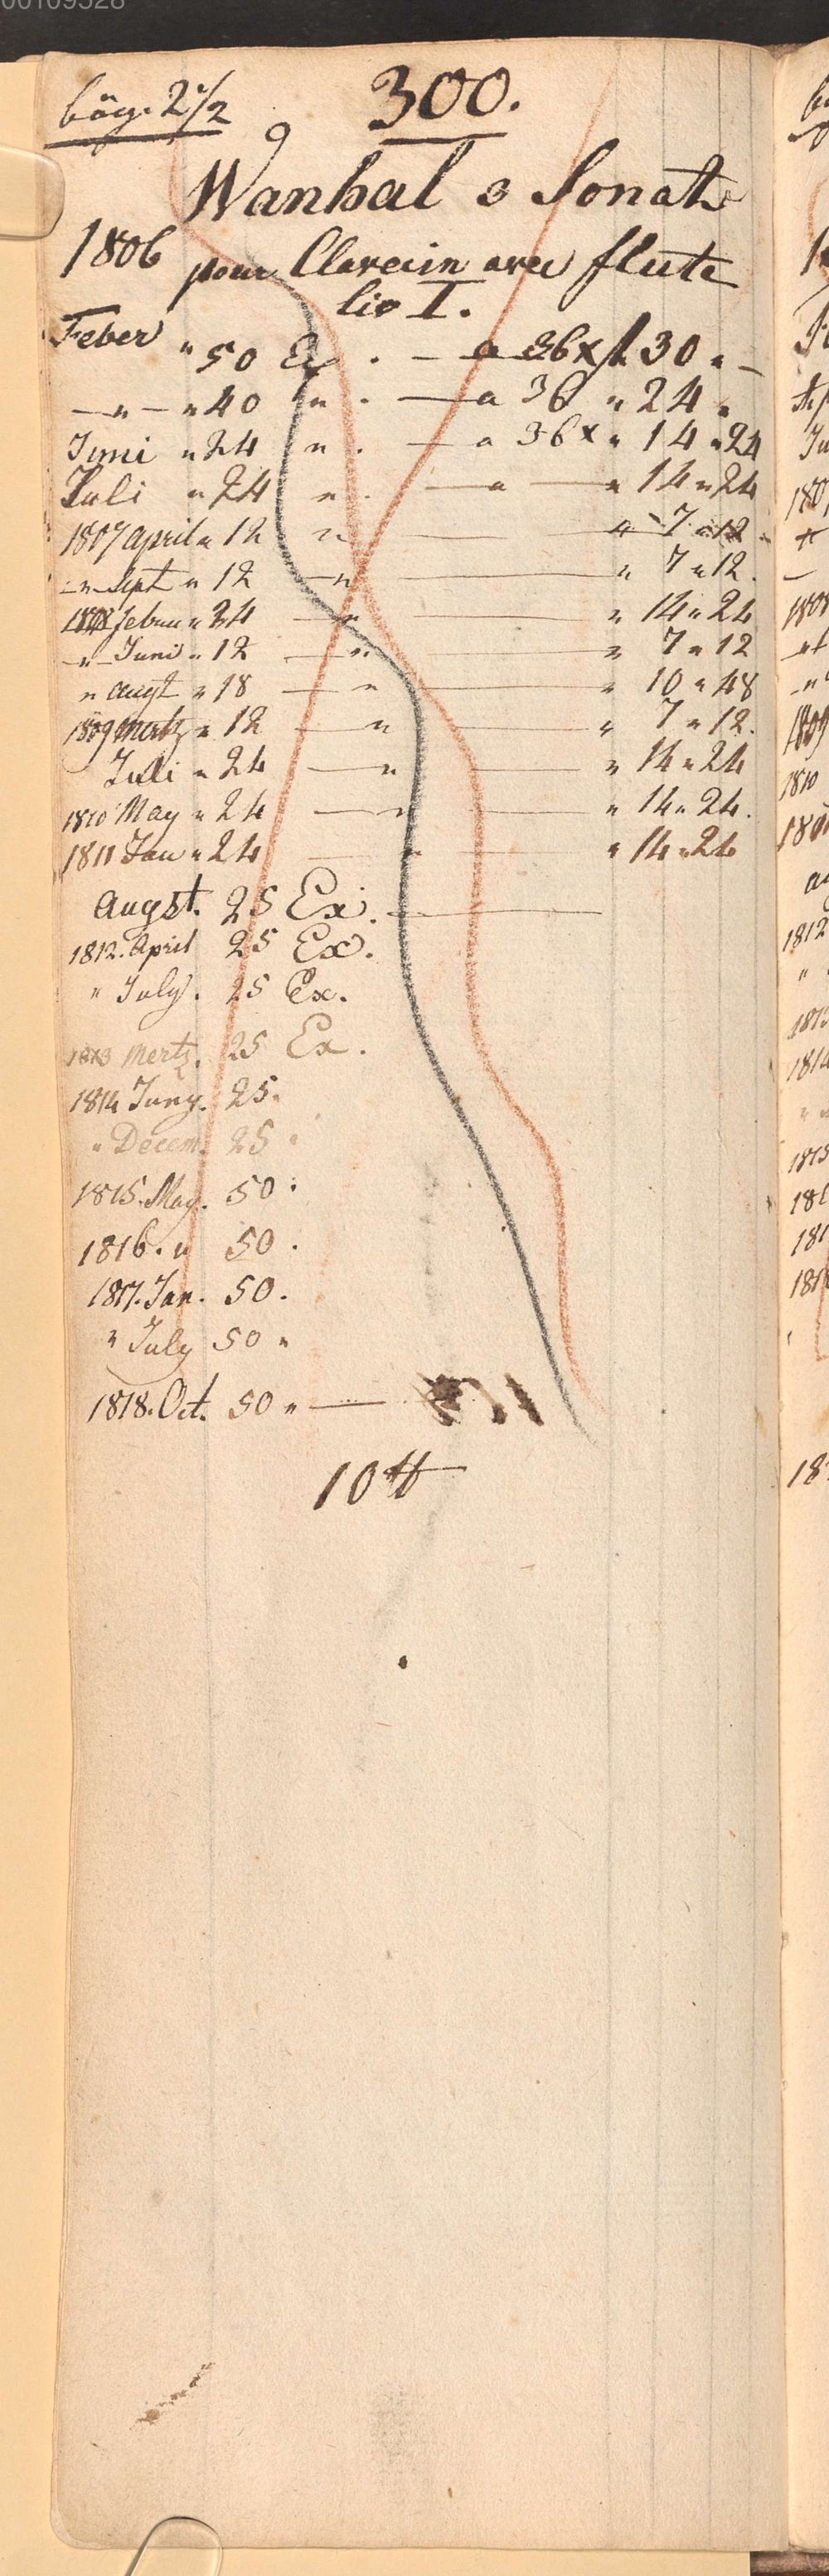 bög. 2 1/2
300.
9
Wanhal 3 Sonate
1806 pour Clavecin avec flute
liv I.
Feber " 50 Ex . — a 36x f 30 " —
— " — " 40 " . — a 36 " 24 "
Juni " 24 " . — a 36x " 14 " 24
Juli " 24 " . — " — " 14 " 24
1807 April " 12 " — " 7 " 12
— " — Sept " 12 — " — " 7 " 12.
1808 Februar " 24 — " — " 14 " 24
— " — Juni " 12 — " — " 7 " 12
" Augt " 18 — " — " 10 " 48
1809 Mertz " 12 — " — " 7 " 12.
Juli " 24 — " — " 14 " 24
1810 May " 24 — " — " 14 " 24.
1811 Jan " 24 — " — " 14 " 24
Augst. 25 Ex. —
1812. April 25 Ex.
" July. 25 Ex.
1813 Mertz. 25 Ex.
1814 Juny. 25.
" Decem. 25 "
1815. May. 50 "
1816. " 50.
1817. Jan. 50.
" July 50 "
1818. Oct. 50 " —
10 tt